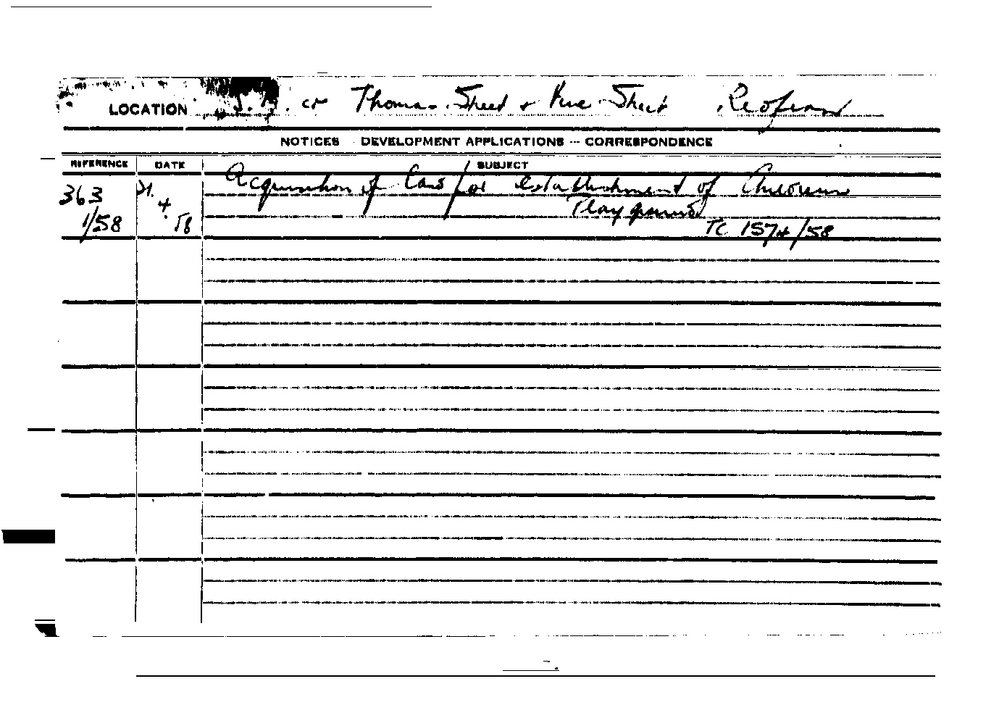 LOCATION cr Thomas Street + Street Redfern
NOTICES - DEVELOPMENT APPLICATIONS - CORRESPONDENCE
REFERENCE DATE SUBJECT
363 21. Acquisition of land for establishment of Childrens
4 Playground
1/58 58 TC 1574/58